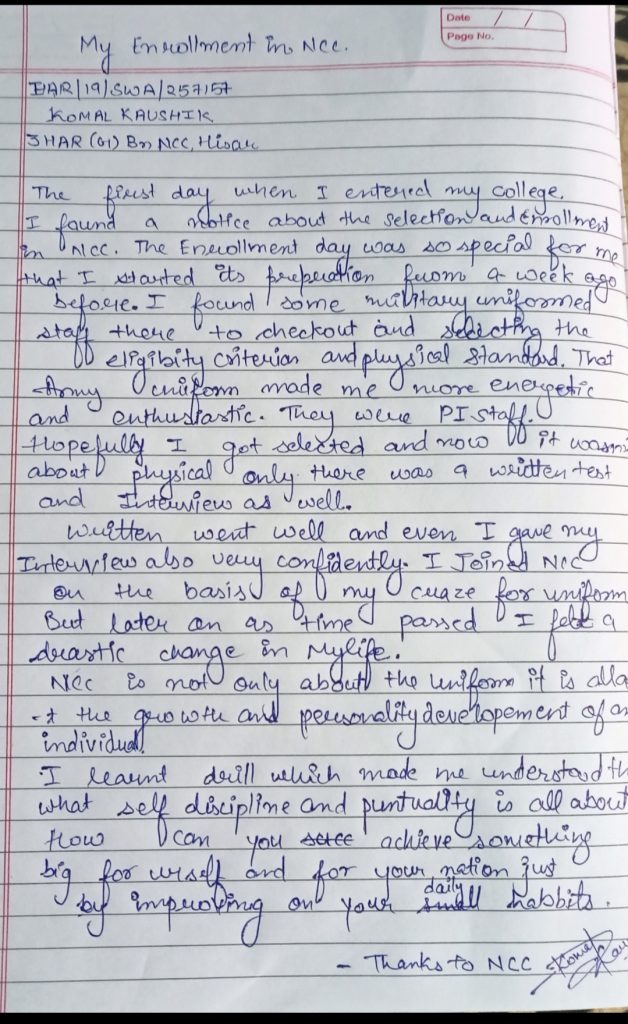 Date / /
Page No.
My Enrollment in NCC.
HAR/19/SWA/257157
KOMAL KAUSHIK
3 HAR (G1) Bn NCC, Hisar
The first day when I entered my college.
I found a notice about the selection and Enrollment
in NCC. The Enrollment day was so special for me
that I started its prepration from a week ago
before. I found some military uniformed
staff there to checkout and selecting the
eligibity criterion and physical standard. That
Army uniform made me more energetic
and enthusiastic. They were PI staff.
Hopefully I got selected and now it wasn
about physical only there was a written test
and Interview as well.
Written went well and even I gave my
Interview also very confidently. I Joined NCC
on the basis of my craze for uniform
But later on as time passed I felt a
drastic change in Mylife.
NCC is not only about the uniform it is allo
t the growth and personality developement of an
individual.
I learnt drill which made me understand th
what self discipline and puntuality is all about
How can you achieve something
big for urself and for your nation just
by improving on your daily habbits.
- Thanks to NCC Komal Kau